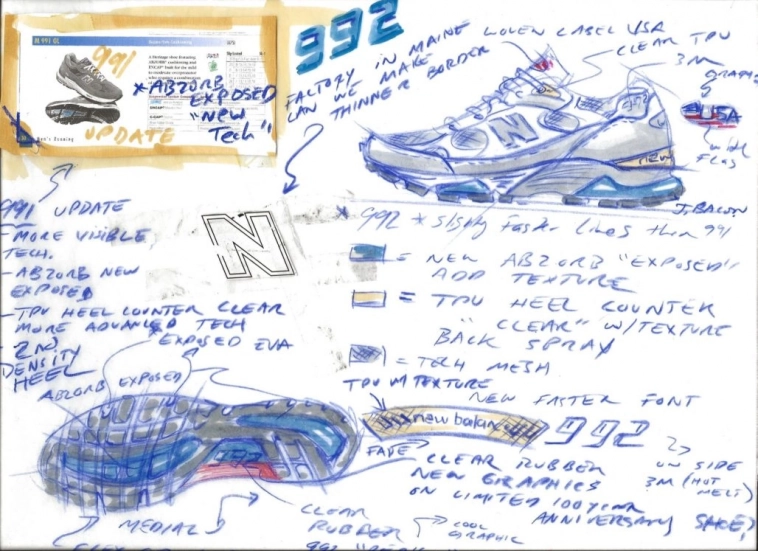 992
M 991 GL
991
UPDATE
* ABZORB
EXPOSED
"NEW
Tech"
Men's Running
FACTORY IN MAINE
CAN WE MAKE
THINNER BORDER
WOVEN LABEL USA
CLEAR TPU
3M
GRAPHIC
USA
FLAG
N
new
J. BACON
991 UPDATE
- MORE VISIBLE
TECH.
- ABZORB NEW
EXPOSED
- TPU HEEL COUNTER CLEAR
MORE ADVANCED TECH
- 2ND
DENSITY
HEEL
N
* 992 * slightly Faster lines then 991
= NEW ABZORB "EXPOSED"
ADD TEXTURE
= TPU HEEL COUNTER
"CLEAR" W/TEXTURE
BACK SPRAY
= TECH MESH
EXPOSED EVA
ABZORB EXPOSED
TPU W TEXTURE
new balan
NEW FASTER FONT
992
ON SIDE
3M (HOT
MELT)
FADE
CLEAR RUBBER
NEW GRAPHICS
ON LIMITED 100 YEAR
ANNIVERSARY SHOE?
MEDIAL
CLEAR
RUBBER
COOL
GRAPHIC